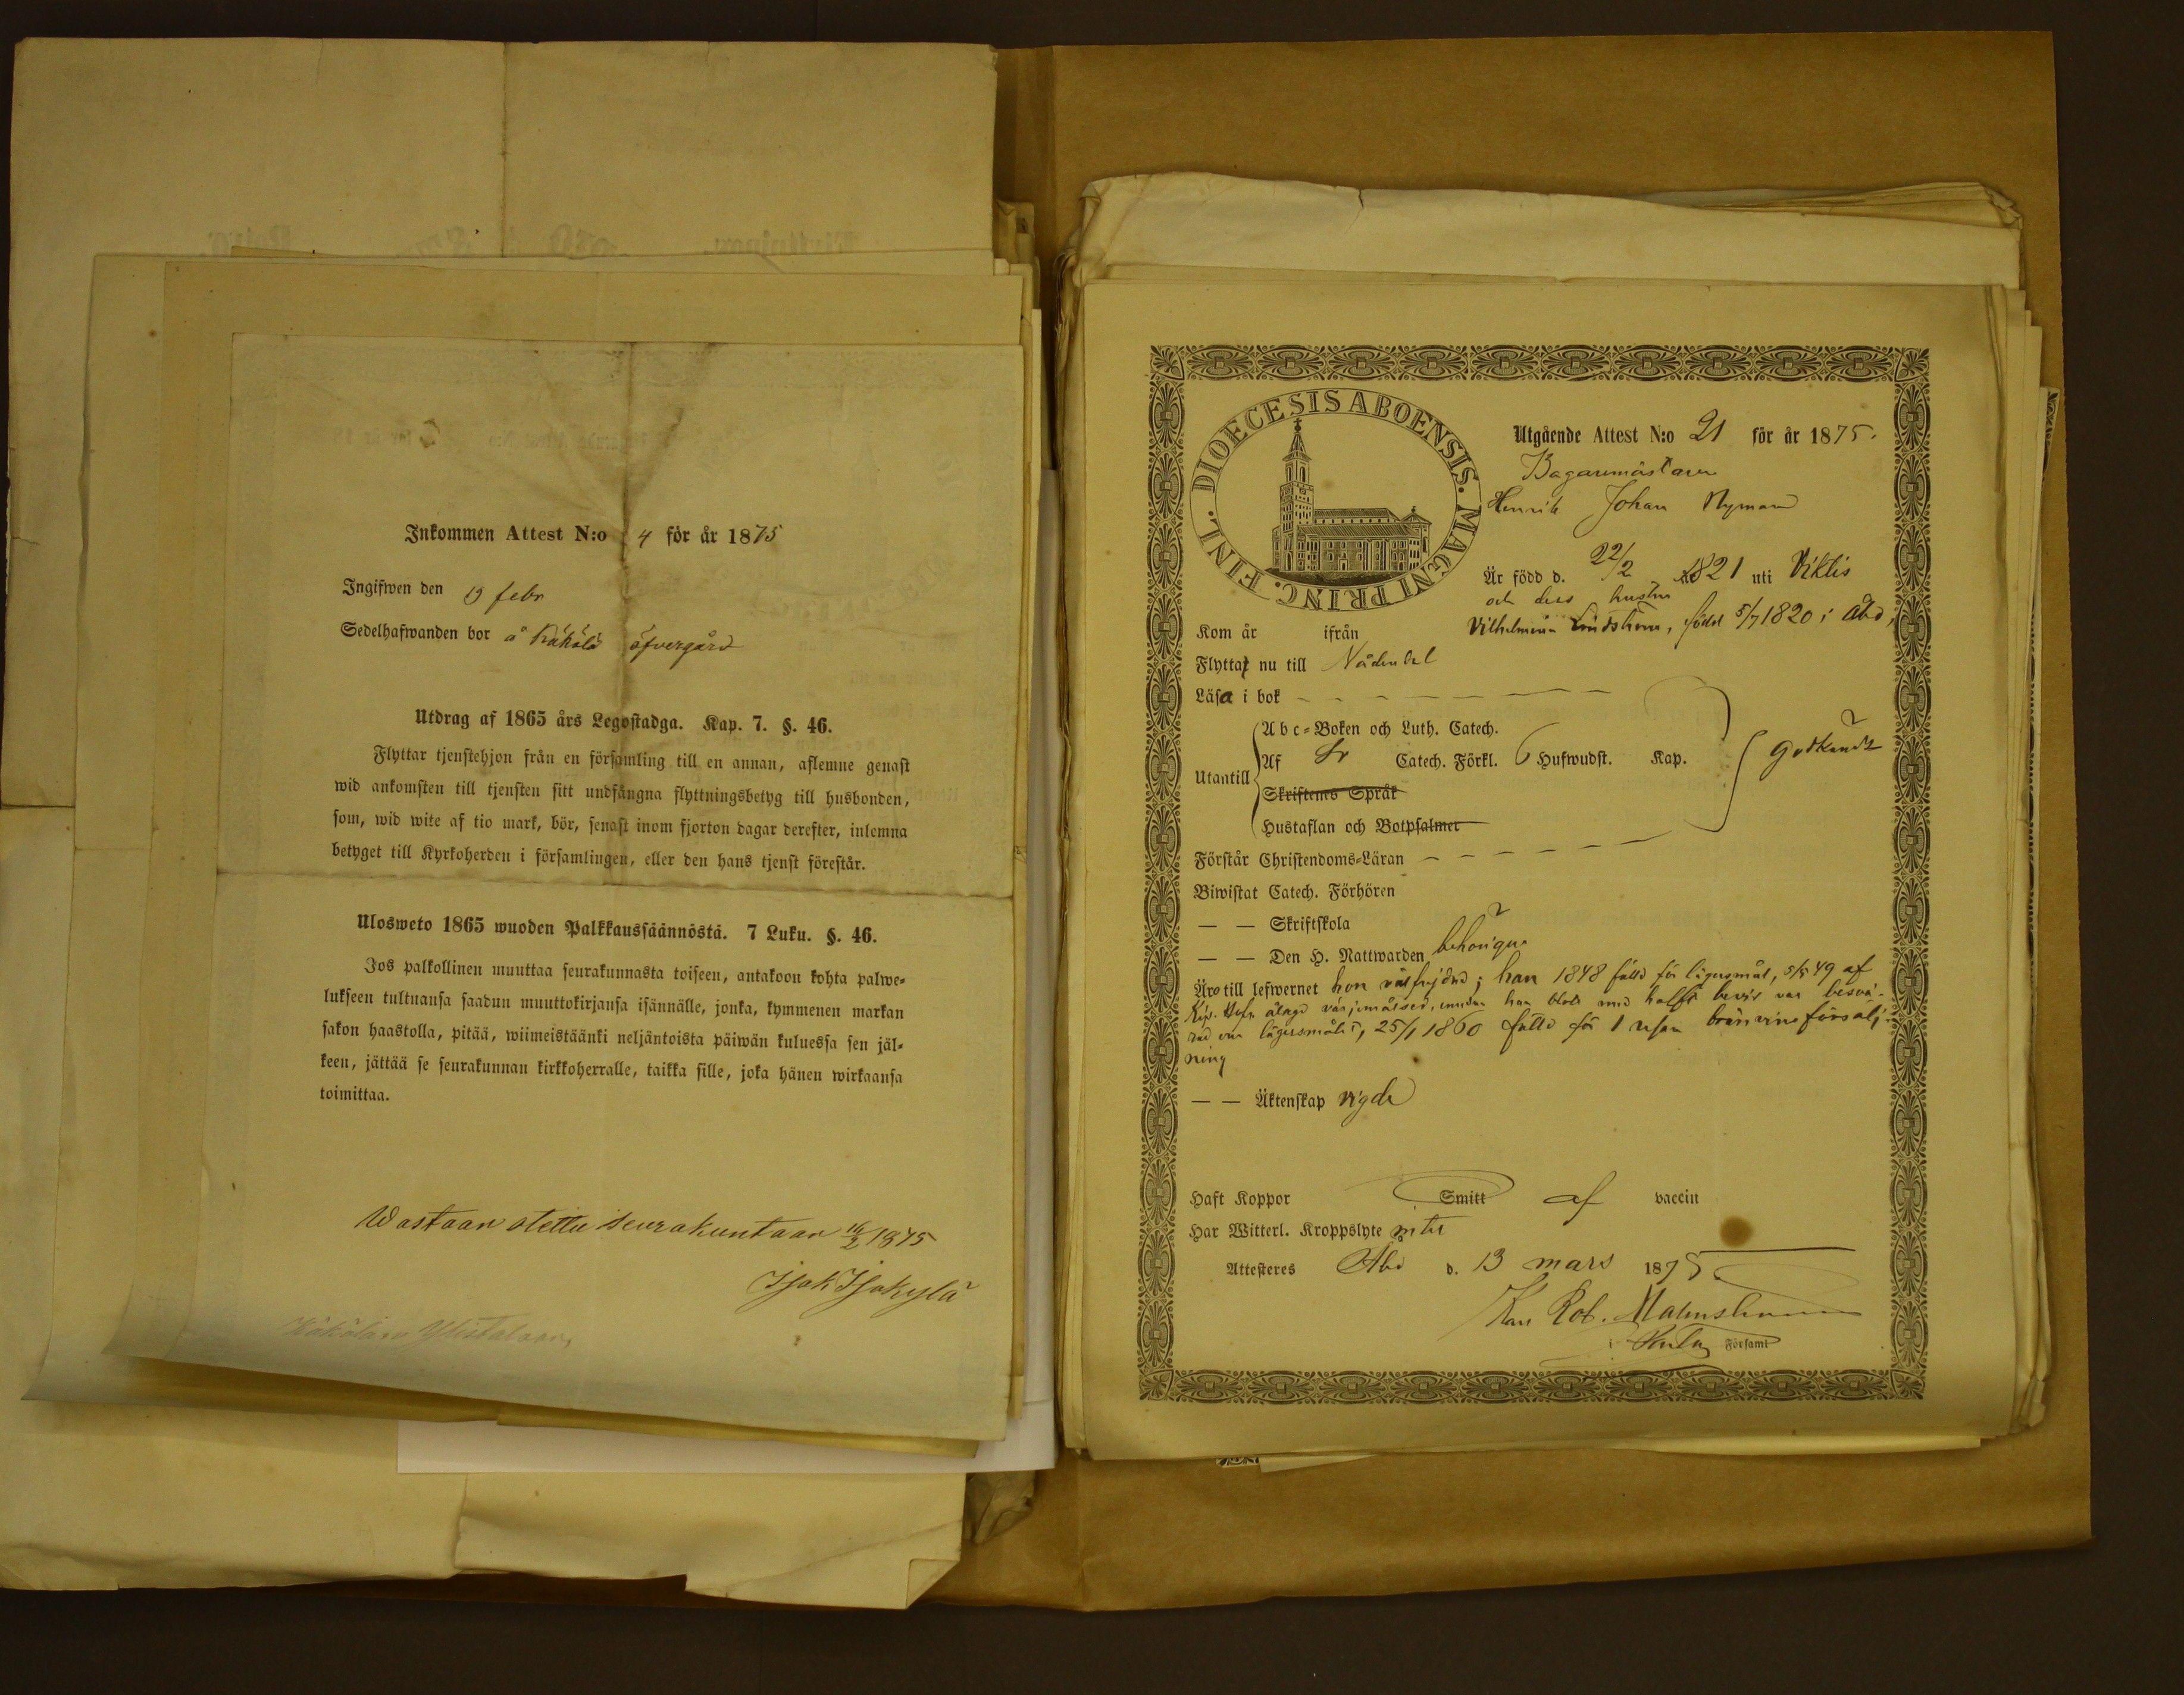 Inkommen Attest N:o 4 för år 1875
Ingifwen den 19 febr
Sedelhafwanden bor å Käkölä öfvergård
Utdrag af 1865 års Legostadga. Kap. 7. §. 46.
Flyttar tjenstehjon från en församling till en annan, aflemne genast
wid ankomsten till tjensten sitt undfångna flyttningsbetyg till husbonden,
som, wid wite af tio mark, bör, senast inom fjorton dagar derefter, inlemna
betyget till Kyrkoherden i församlingen, eller den hans tjenst förestår.
Ulosweto 1865 wuoden Palkkaussäännöstä. 7 Luku. §. 46.
Jos palkollinen muuttaa seurakunnasta toiseen, antakoon kohta palwe-
lukseen tultuansa saadun muuttokirjansa isännälle, jonka, kymmenen markan
sakon haastolla, pitää, wiimeistäänki neljäntoista päiwän kuluessa sen jäl-
keen, jättää se seurakunnan kirkkoherralle, taikka sille, joka hänen wirkaansa
toimittaa.
Wastaan otettu seurakuntaan 16/2 1875
Isak Isokylä
Käkölän Ylistaloon,
DIOECESIS ABOENSIS. MAGNI PRINC. FINL.
Utgående Attest N:o 21 för år 1875.
Bagaremästaren
Henrik Johan Nyman
Är född d. 22/2 1821 uti Viktis
och dess hustru
Vilhelmina Lindström, född 5/7 1820 i Åbo,
Kom år ifrån
Flyttar nu till Nådendal
Läsa i bok
Utantill
Abc-Boken och Luth. Catech.
Af Sv Catech. Förkl. 6 Hufwudst. Kap.
Skriftenes Språk
Hustaflan och Botpsalmer
godkändt
Förstår Christendoms-Läran
Biwistat Catech. Förhören
— — Skriftskola
— — Den H. Nattwarden behörigen
Äro till lefwernet hon välfrejdad; han 1848 fälld för lägersmål, 5/5 49 af
ålagd värjemålsed, enedan han blott med halft bevis var besvä-
rad om lägersmålet, 25/1 1860 fälld för 1 resan brännvinsförsälj-
ning
— — Äktenskap vigde
Haft Koppor Smitt af vaccin
Har Witterl. Kroppslyte intet
Attesteres Åbo d. 13 mars 1875.
Karl Rob. Malmström
i Församl